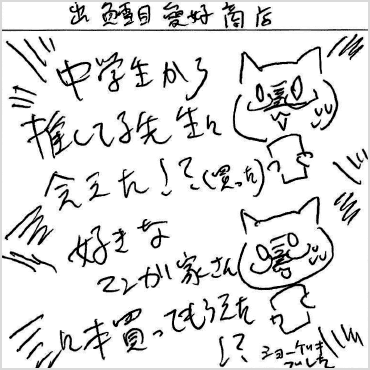 出鱈目愛好商店
中学生から
推してる先生に
会えた!?(買った)
好きな
マンガ家さん
に本買ってもらえた
!?
ショーゲキ